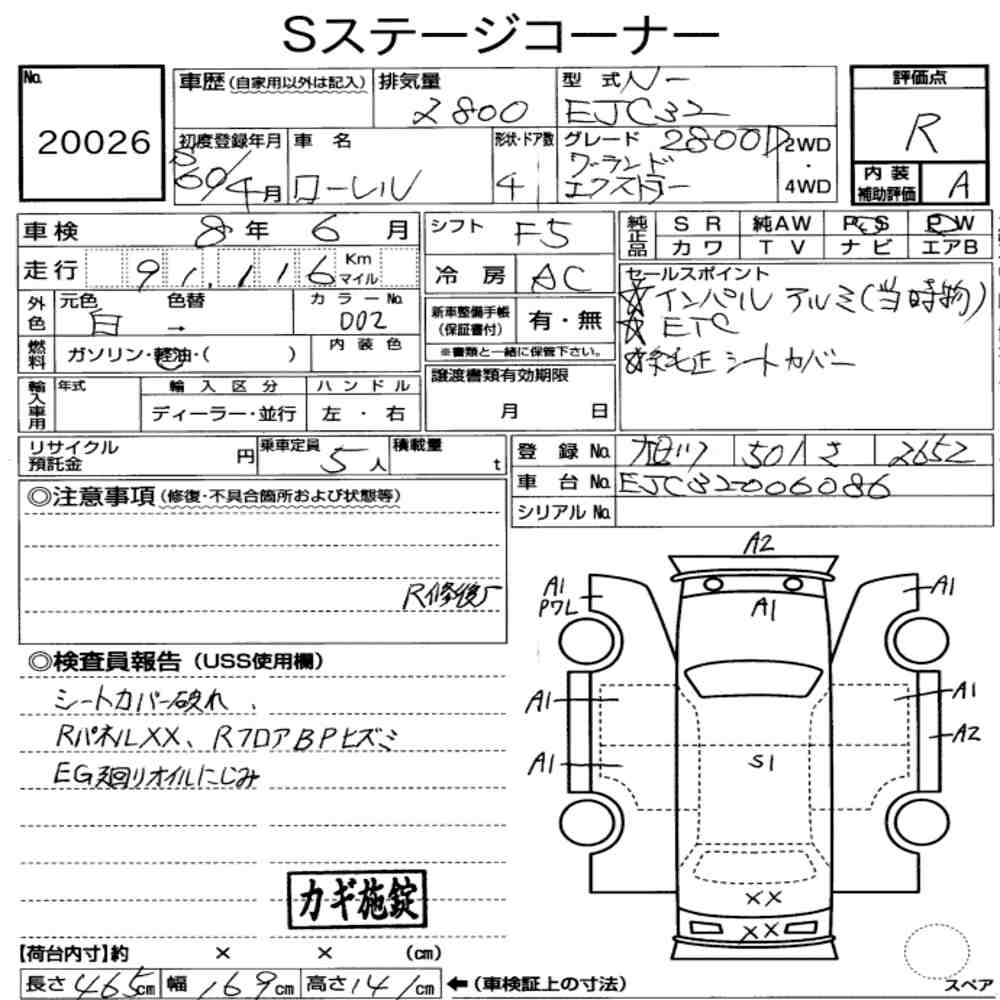 Sステージコーナー
No.
20026
車歴 (自家用以外は記入)
排気量
2800
型式 N-
EJC32
評価点
R
初度登録年月
S60/4月
車名
ローレル
形状・ドア数
4
グレード 2800D
グランド
エクストラー
2WD
・
4WD
内装
補助評価
A
車検 8年 6月
シフト F5
純正品
SR 純AW PS PW
カワ TV ナビ エアB
走行 91,116 Km マイル
冷房 AC
セールスポイント
☆インパル アルミ(当時物)
☆ETC
☆純正シートカバー
外色
元色 白
色替 →
カラーNo.
002
新車整備手帳
(保証書付)
有・無
※書類と一緒に保管下さい。
燃料
ガソリン・軽油・( )
内装色
輸入車用
年式
輸入区分
ディーラー・並行
ハンドル
左・右
譲渡書類有効期限
月 日
リサイクル
預託金 円
乗車定員 5人
積載量 t
登録No. 旭川 501 さ 2652
車台No. EJC32006086
シリアルNo.
◎注意事項(修復・不具合箇所および状態等)
R修復
◎検査員報告 (USS使用欄)
シートカバー破れ、
RパネルXX、RフロアBPヒズミ
EG廻りオイルにじみ
A2
A1
PワL
A1
A1
A1
A1
A2
A1
S1
XX
XX
カギ施錠
【荷台内寸】約 × × (cm)
長さ 465cm 幅 169cm 高さ 141cm ←(車検証上の寸法)
スペア